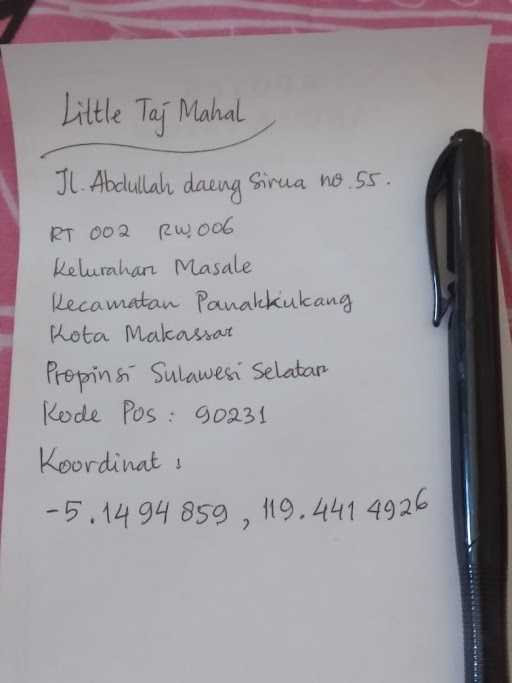 Little Taj Mahal
Jl. Abdullah daeng Sirua no.55.
RT 002 RW.006
Kelurahan Masale
Kecamatan Panakkukang
Kota Makassar
Propinsi Sulawesi Selatan
Kode Pos : 90231
Koordinat :
-5.1494859, 119.4414926